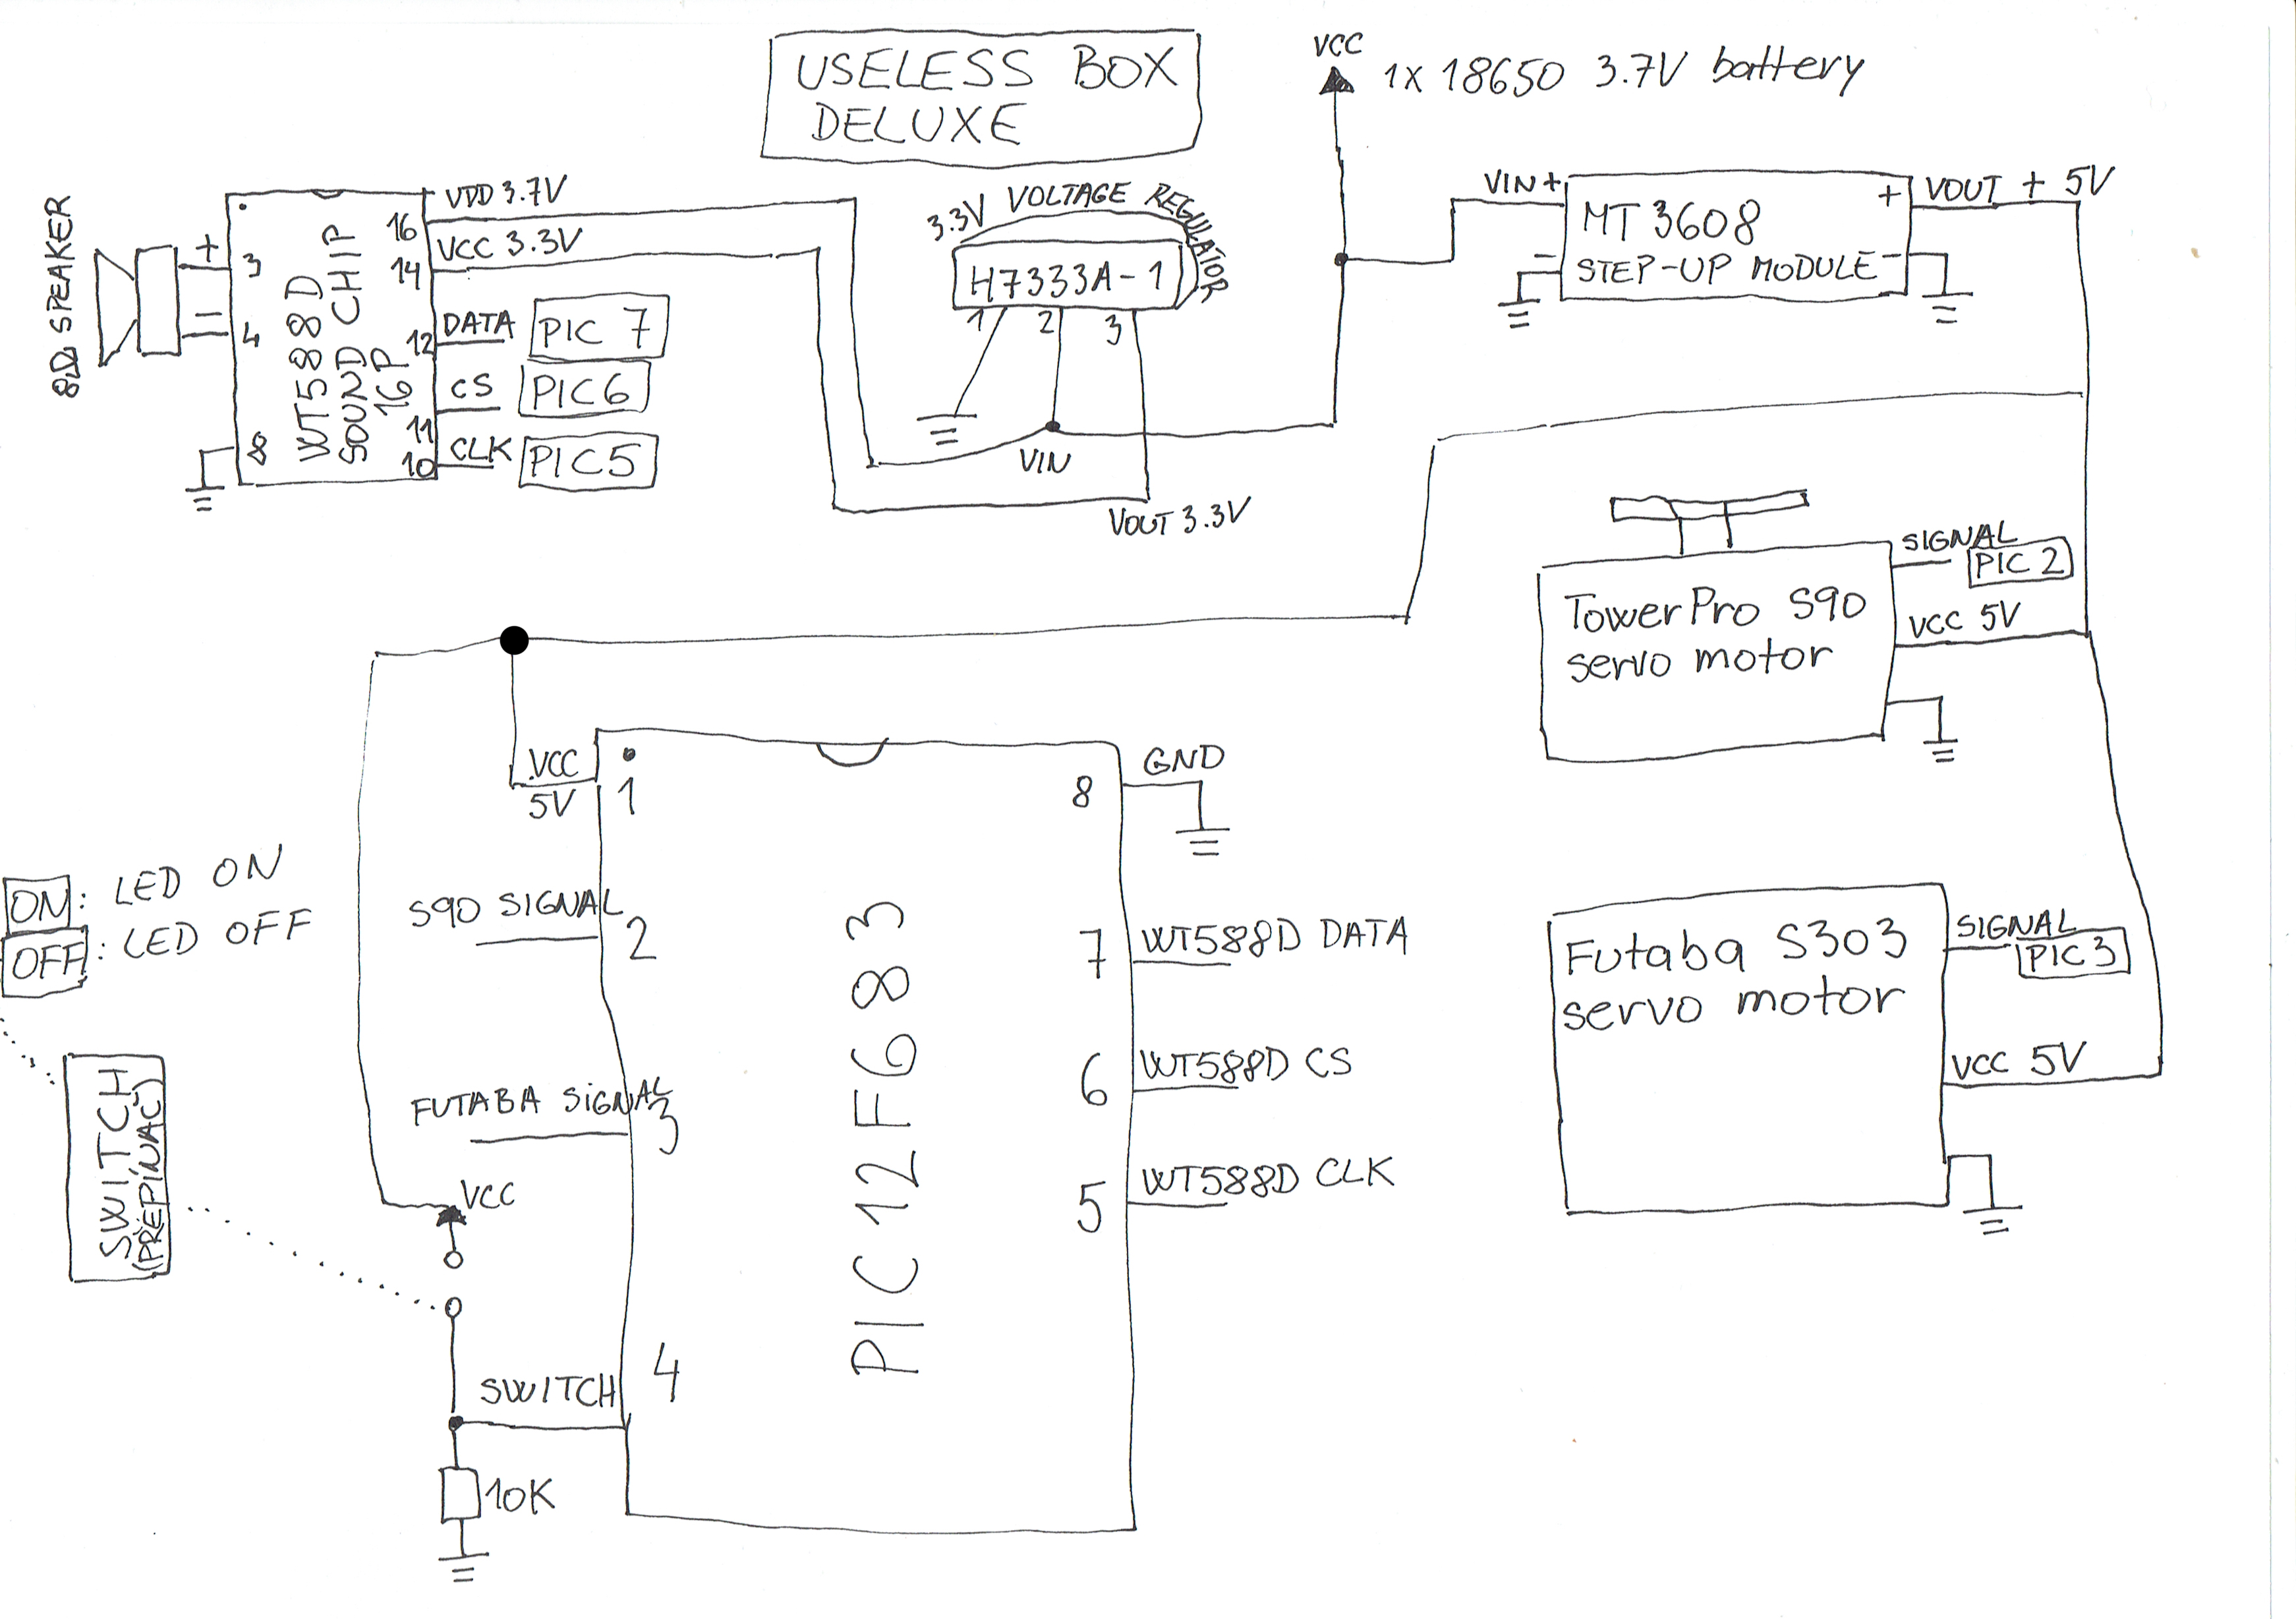 USELESS BOX
DELUXE
VCC
1X 18650 3.7V battery
8Ω SPEAKER
+
3
4
8
WT588D
SOUND CHIP
16P
16
VDD 3.7V
14
VCC 3.3V
12
DATA
PIC 7
11
CS
PIC6
10
CLK
PIC5
3.3V VOLTAGE REGULATOR
H7333A-1
1
2
3
VIN
VOUT 3.3V
VIN+
-
MT 3608
STEP-UP MODULE
+
-
VOUT + 5V
TowerPro S90
servo motor
SIGNAL
PIC 2
VCC 5V
Futaba S303
servo motor
SIGNAL
PIC 3
VCC 5V
VCC
5V
1
S90 SIGNAL
2
FUTABA SiGNAL
3
SWITCH
4
PIC 12F683
8
GND
7
WT588D DATA
6
WT588D CS
5
WT588D CLK
ON: LED ON
OFF: LED OFF
SWITCH
(PŘEPÍNAČ)
VCC
10K